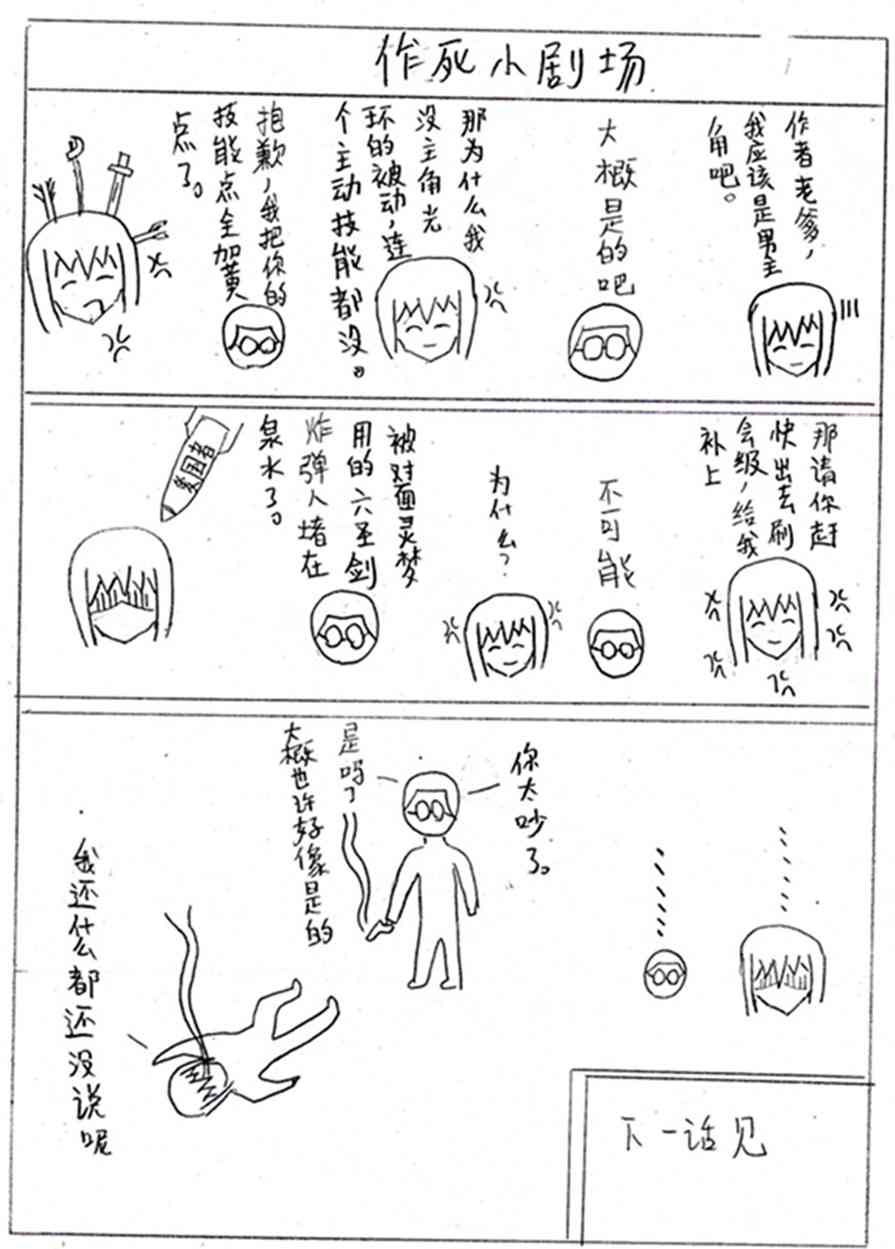 作死小剧场
作者老爹，
我应该是男主
角吧。
大概是的吧
那为什么我
没主角光
环的被动，连
个主动技能都没。
抱歉，我把你的
技能点全加黄
点了。
那请你赶
快出去刷
会级，给我
补上
不可能
为什么？
被对面灵梦
用的六圣剑
炸弹人堵在
泉水了。
爱国者
……
……
你太吵了。
是吗？
大概也许好像是的
我还什么都还没说呢
下一话见